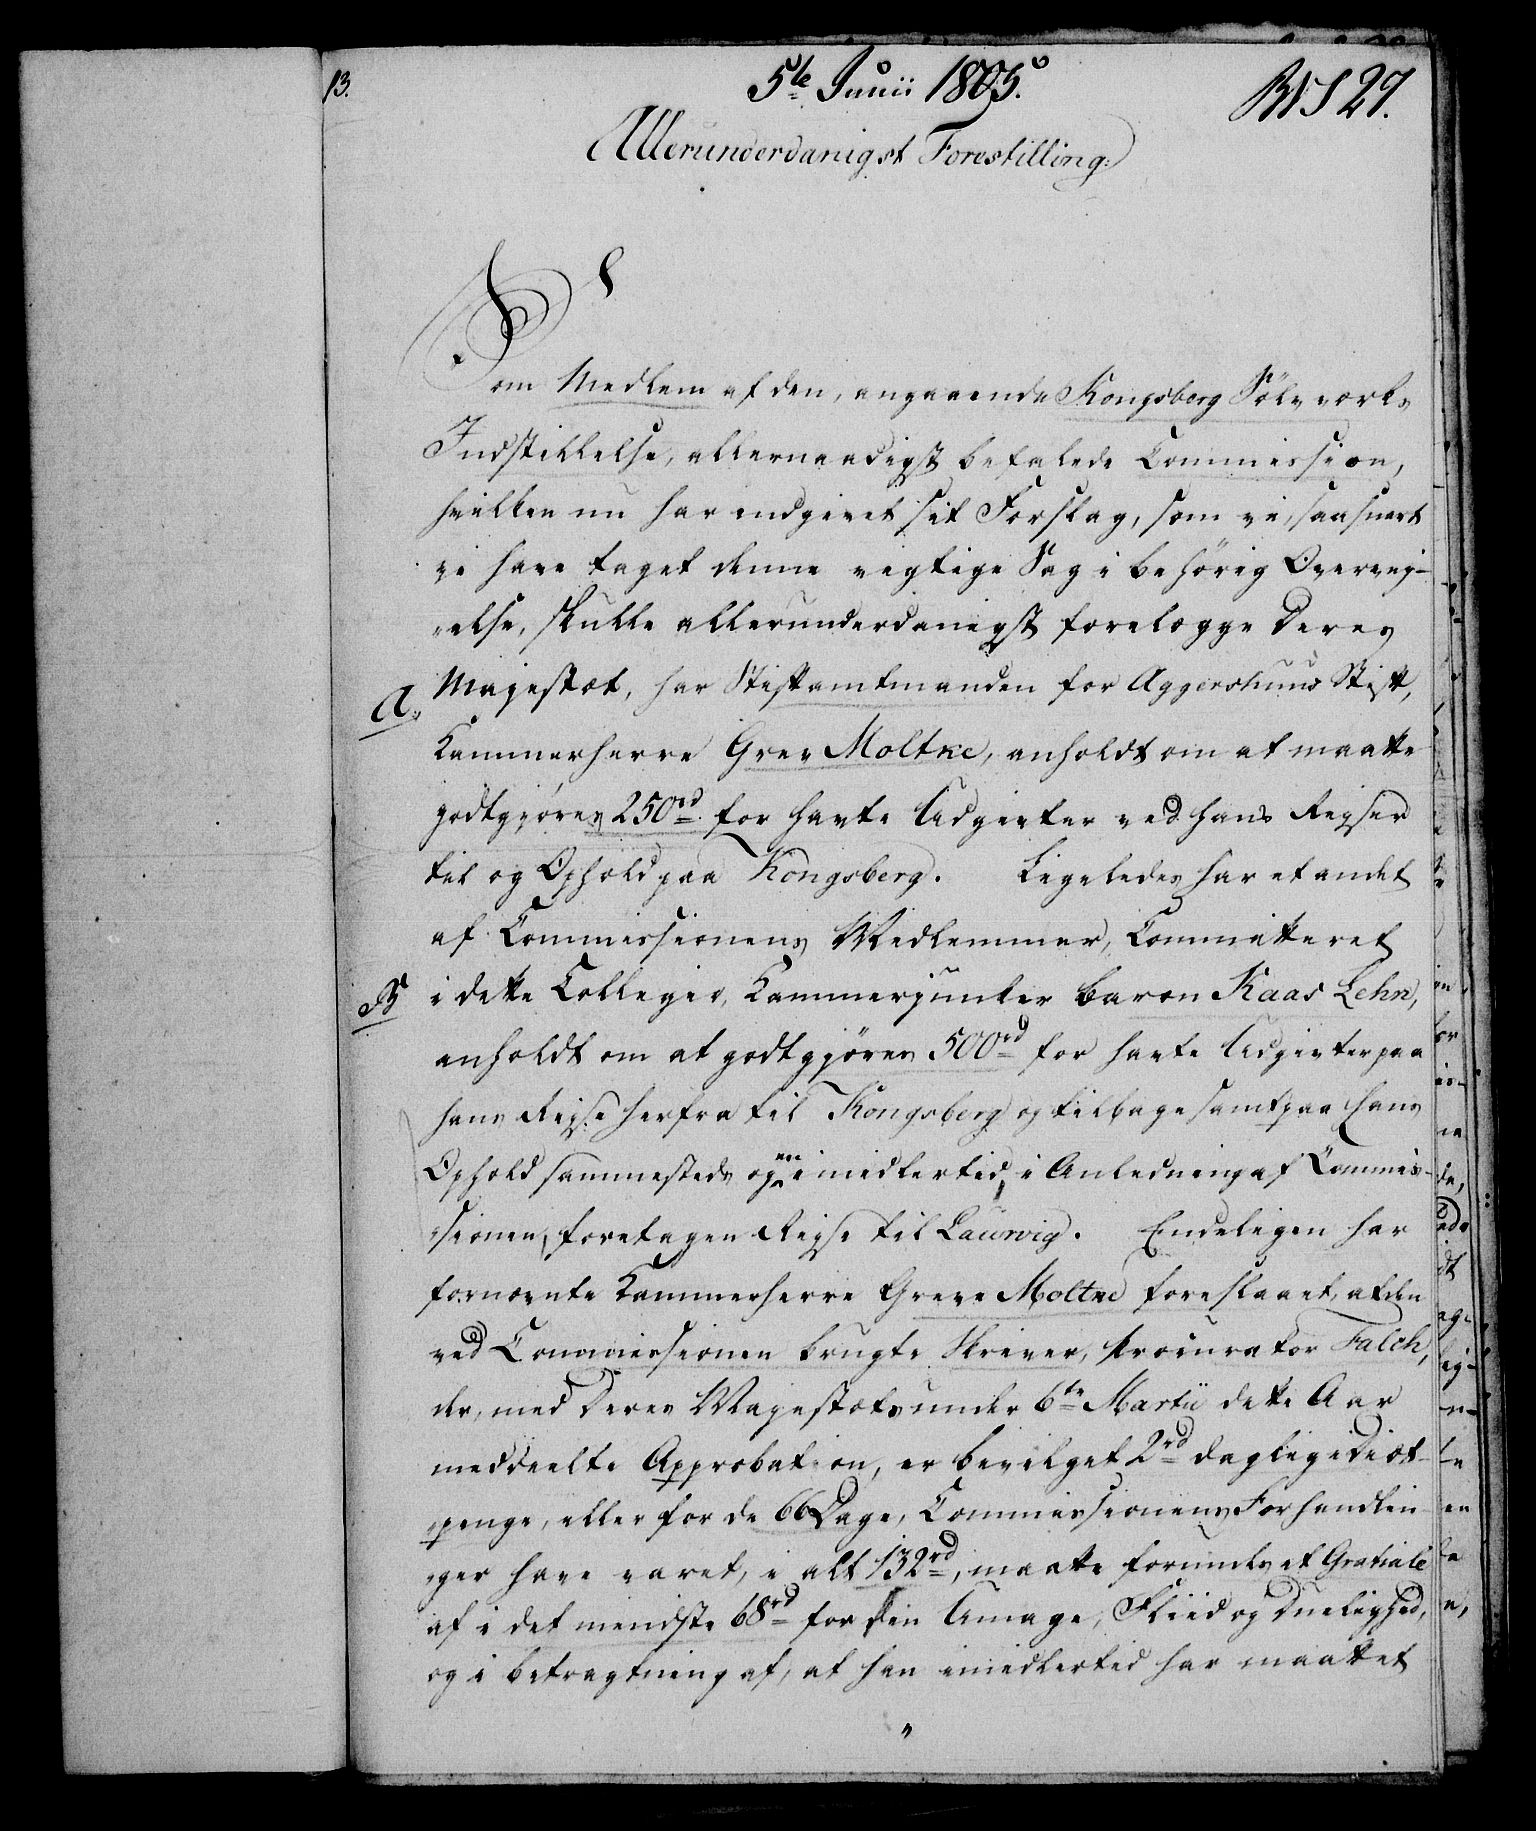 13.
5te Junii 1805.
RVS 27.
Allerunderdanigst Forestilling.
Som Medlem af den, angaaende Kongsberg Sölvværks
Indstillelse, allernaadigst befalede Commission,
hvilken nu har indgivet sit Forslag, som vi, saasnart
vi have taget denne vigtige Sag i behörig Overvej-
„else, skulle allerunderdanigst forelægge Deres
Majestæt, har Stiftamtmanden for Aggershuus Stift,
A.
Kammerherre Grev Moltke, anholdt om at maatte
godtgjöres 250rd for havte Udgivter ved hans Rejser
til og Ophold paa Kongsberg. Ligeledes har et andet
af Commissionens Medlemmer, Committeret
B
i dette Collegio, Kammerjunker Baron Kaas Lehn,
anholdt om at godtgjöres 500rd for havte Udgivter paa
hans Rejse herfra til Kongsberg og tilbage samt paa hans
Ophold sammesteds og en imidlertid, i Anledning af Commis-
„sionen, foretagen Rejse til Laurvig. Endeligen har
fornævnte Kammerherre Greve Moltke foreslaaet, at den
ved Commissionen brugte Skriver, Procurator Falch,
der, med Deres Majestæts under 6te Martii dette Aar
meddeelte Approbation, er bevilget 2rd daglig Diæt-
„penge, eller for de 66 Dage, Commissionens Forhandlin-
„ger have varet, i alt 132rd, maatte forundes et Gratiale
af i det mindste 68rd for sin Umage, Fliid og Duelighed,
og i betragtning af, at han imidlertid har maattet